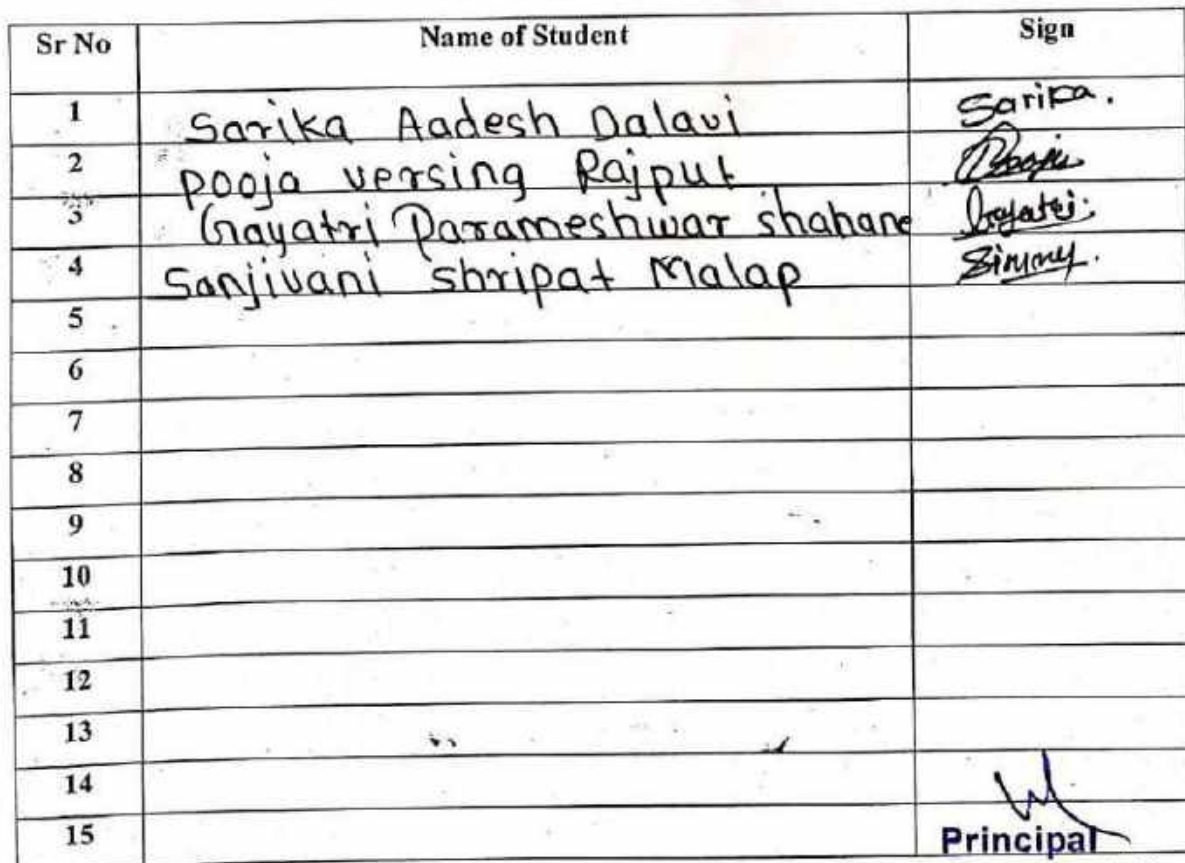 Sr No Name of Student Sign
1 Sarika Aadesh Dalavi Sarika.
2 Pooja versing Rajput Pooja
3 Gayatri Parameshwar shahane Gayatri.
4 Sanjivani shripat Malap
5
6
7
8
9
10
11
12
13
14
15 Principal